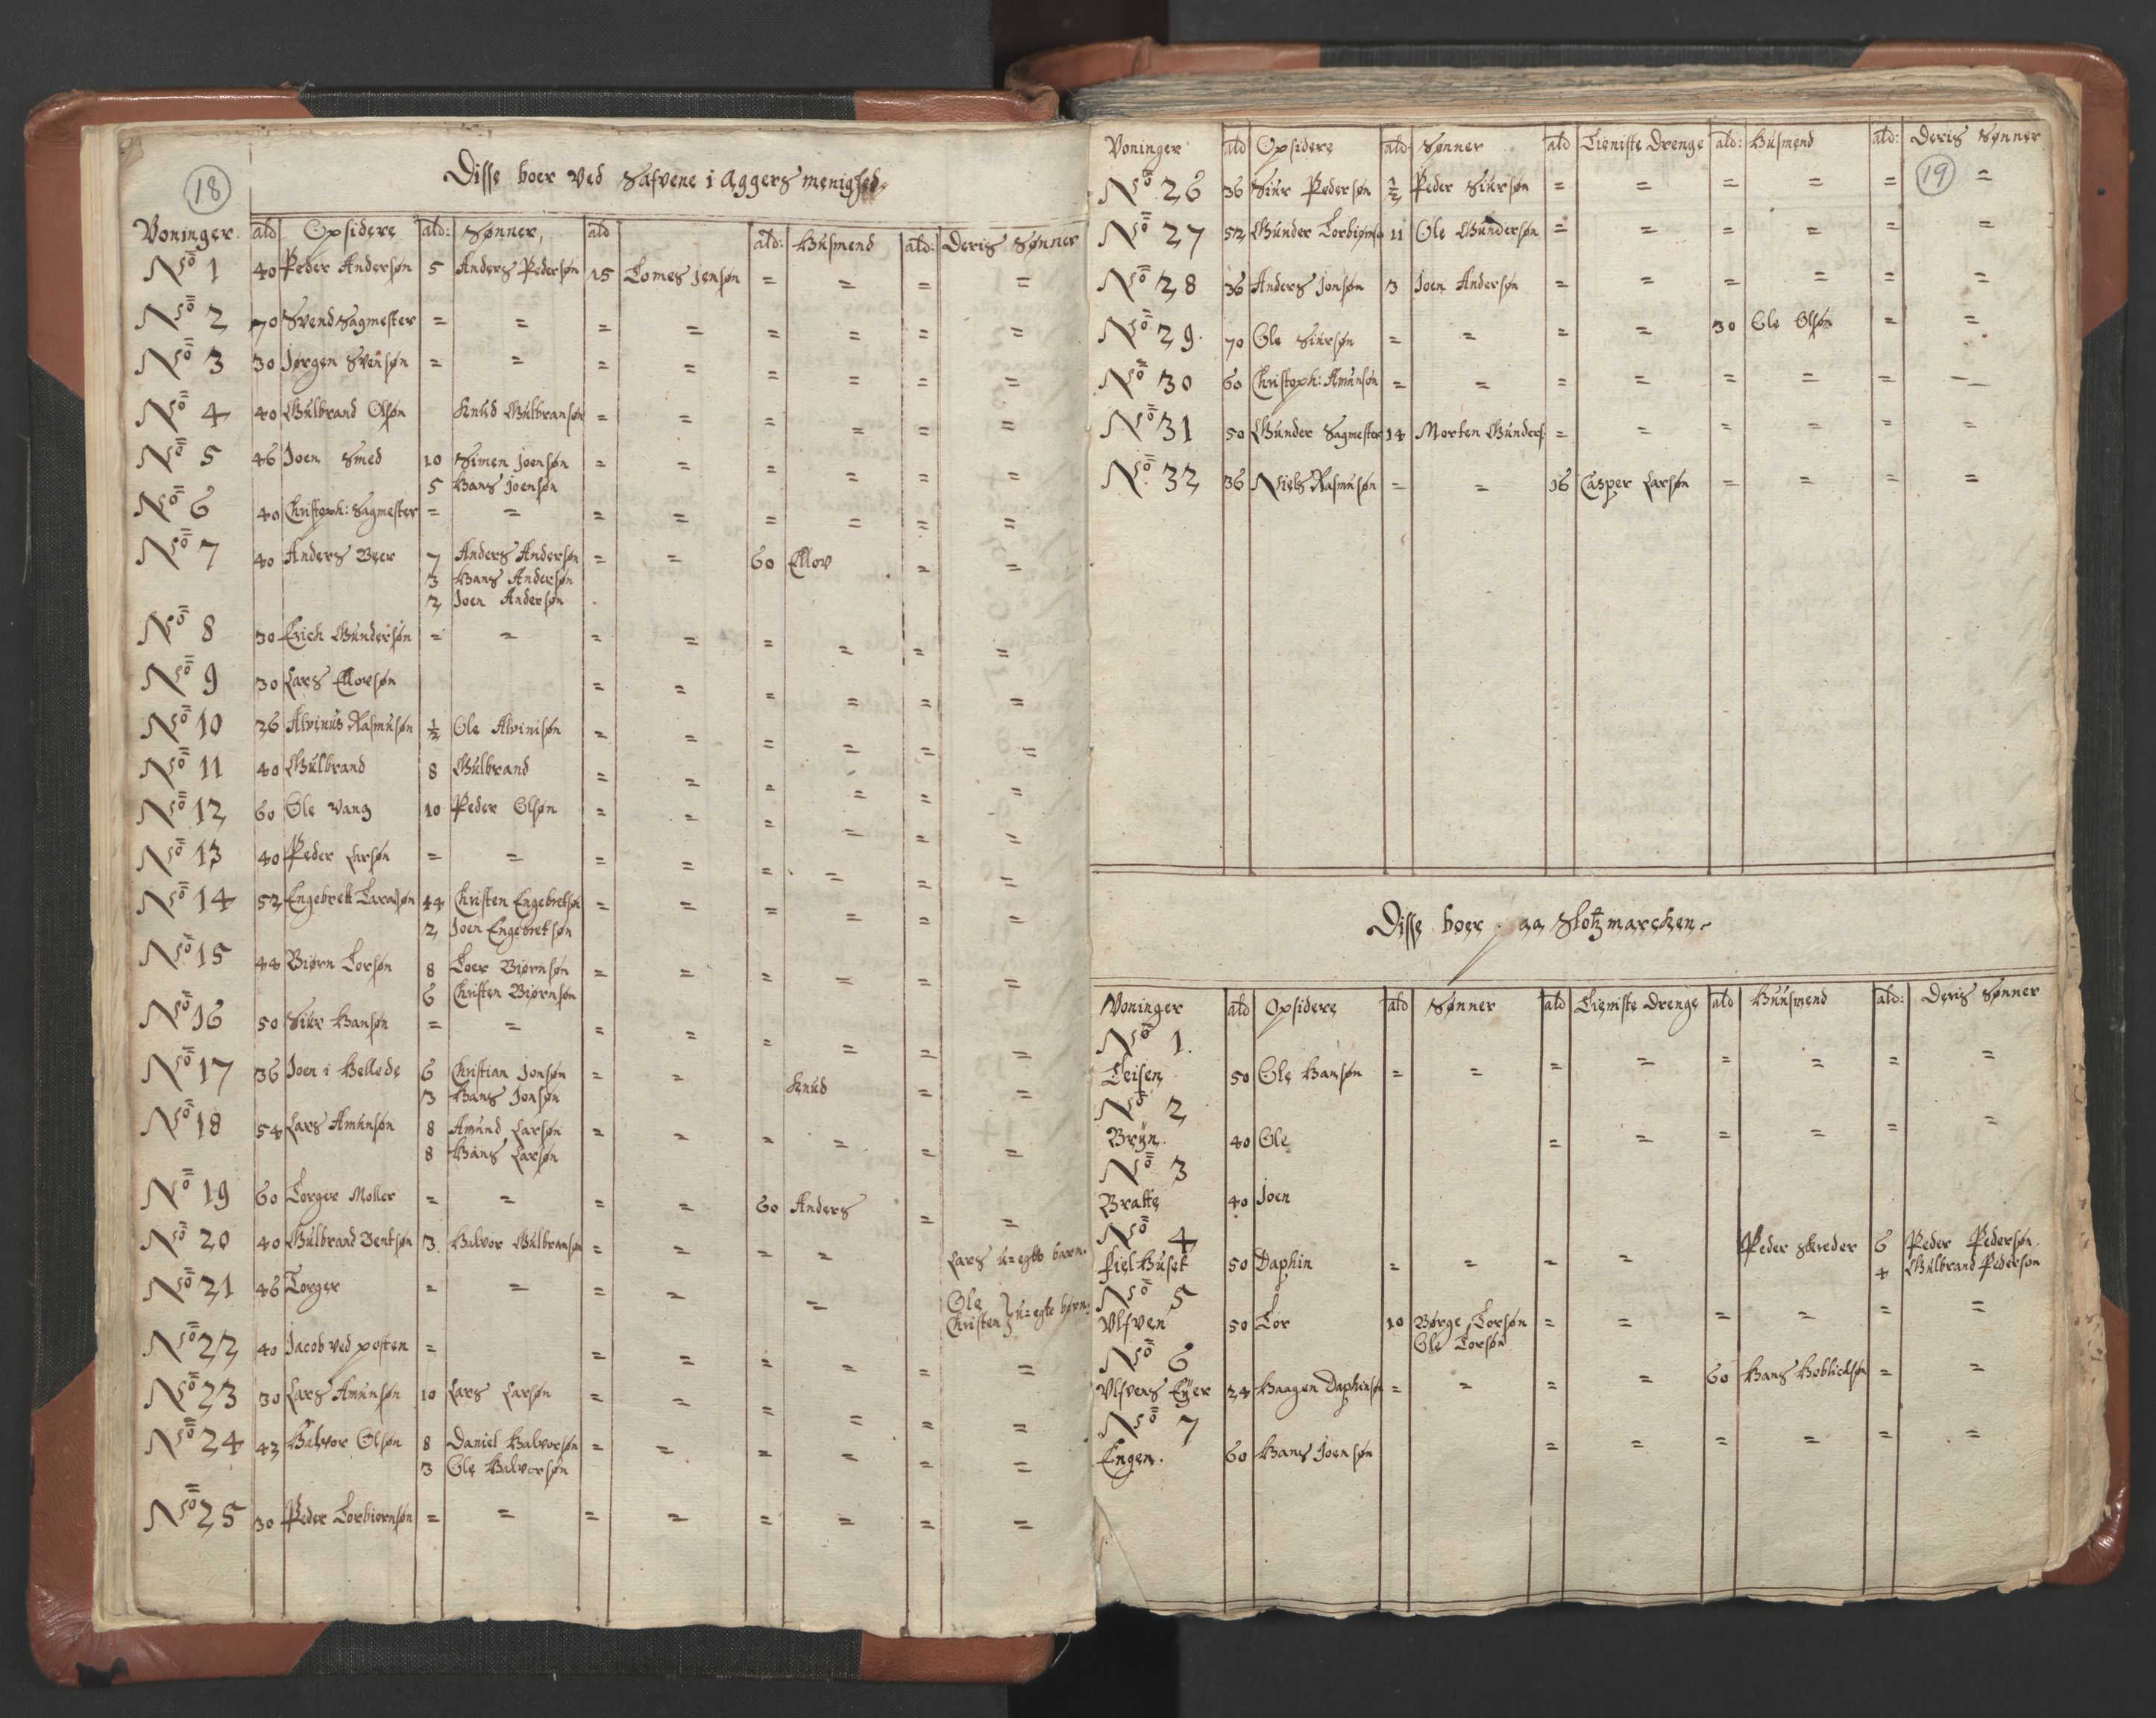 18
Disse boer ved Safvene i Aggers menighed
Voninger. ald Opsidere ald: Sønner, ald ald: Husmend ald: Deris Sønner
No 1 40 Peder Andersøn 5 Anders Pedersøn 15 Tomes Jensøn = = = =
No 2 70 Svend Sagmester = = = = = = = =
No 3 30 Jørgen Svensøn = = = = = = = =
No 4 40 Gulbrand Olsøn Knud Gulbransøn = = = = = =
No 5 46 Joen Smed 10 Simen Joensøn = = = = = =
5 Hans Joensøn
No 6 40 Christoph: Sagmester = = = = = = = =
No 7 40 Anders Beer 7 Anders Andersøn = = 60 Ellov = =
3 Hans Andersøn
2 Joen Andersøn
No 8 30 Erich Gundersøn = = = = = = = =
No 9 30 Lars Ellovsøn = = = = = =
No 10 36 Alvinus Rasmusøn ½ Ole Alvinisøn = = = = = =
No 11 40 Gulbrand 8 Gulbrand = = = = = =
No 12 60 Ole Vang 10 Peder Olsøn = = = = = =
No 13 40 Peder Larsøn = = = = = = = =
No 14 52 Engebrett 44 Christen Engebretsøn = = = = = =
2 Joen Engebretsøn
No 15 44 Biørn Torsøn 8 Toer Biørnsøn = = = = = =
6 Christen Biørnsøn
No 16 50 Siur Hansøn = = = = = = = =
No 17 36 Joen i Hellede 6 Christian Jonsøn = = Knud = =
3 Hans Jonsøn
No 18 54 Lars Amunsøn 8 Amund Larsøn = = = = = =
8 Hans Larsøn
No 19 60 Torger Moller = = = = 60 Anders = =
No 20 40 Gulbrand Bentsøn 3. Halvor Gulbransøn = = = = Lars u=egte barn.
No 21 46 Torger = = = = = Ole
Christen } u=egte børn:
No 22 40 Jacob ved posten = = = = = = =
No 23 30 Lars Amunsøn 10 Lars Larsøn = = = = = =
No 24 43 Halvor Olsøn 8 Daniel Halvorsøn = = = = = =
3 Ole Halvorsøn
No 25 30 Peder Torbiørnsøn = = = = = = = =
Voninger ald Opsidere ald Sønner ald Tieniste Drenge ald: Husmend ald: Deris Sønner
19
No 26 36 Siur Pedersøn ½ Peder Siursøn = = = = = =
No 27 52 Gunder Torbiørnsø 11 Ole Gundersøn = = = = = =
No 28 36 Anders Jonsøn 3 Joen Andersøn = = = = = =
No 29. 70 Ole Siursøn = = = = 30 Ole Olsøn = =
No 30 60 Christoph: Amunsøn = = = = = = =
No 31 50 Gunder Sagmester 14 Morten Gunders: = = = = = =
No 32 36 Niels Rasmusøn = = 16 Casper Larsøn = = = =
Disse boer paa Slotzmarchen
Voninger ald Opsidere ald Sønner ald Tieniste Drenge ald Huusmend ald: Deris Sønner
No 1.
Teisen 50 Ole Hansøn = = = = = = = =
No 2
Bryn. 40 Ole = = = = = =
No 3
Bratte 40 Joen
No 4
fielhuset 50 Daphin = = = = Peder Skreder 6 Peder Pedersøn.
4 Gulbrand Pederson
No 5
Ulfven 50 Tor 10 Børge Torsøn = = = = = =
Ole Torsøn
No 6
Ulfvens Eyer 24 Haagen Daphinsøn = = = = 60 Hans = =
No 7
Engen. 60 Hans Joensøn = = = = = =